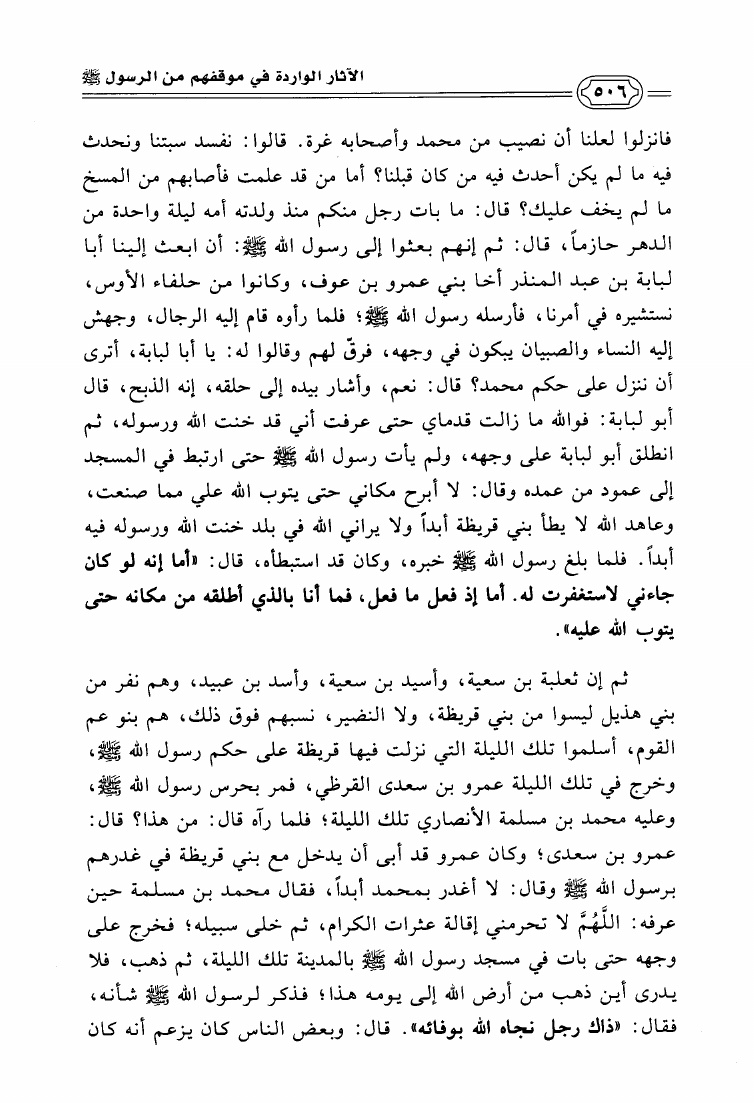 الآثار الواردة في موقفهم من الرسول ﷺ
٥٠٦
فانزلوا لعلنا أن نصيب من محمد وأصحابه غرة. قالوا: نفسد سبتنا ونحدث
فيه ما لم يكن أحدث فيه من كان قبلنا؟ أما من قد علمت فأصابهم من المسخ
ما لم يخف عليك؟ قال: ما بات رجل منكم منذ ولدته أمه ليلة واحدة من
الدهر حازماً، قال: ثم إنهم بعثوا إلى رسول الله ﷺ: أن ابعث إلينا أبا
لبابة بن عبد المنذر أخا بني عمرو بن عوف، وكانوا من حلفاء الأوس،
نستشيره في أمرنا، فأرسله رسول الله ﷺ؛ فلما رأوه قام إليه الرجال، وجهش
إليه النساء والصبيان يبكون في وجهه، فرقّ لهم وقالوا له: يا أبا لبابة، أترى
أن ننزل على حكم محمد؟ قال: نعم، وأشار بيده إلى حلقه، إنه الذبح، قال
أبو لبابة: فوالله ما زالت قدماي حتى عرفت أني قد خنت الله ورسوله، ثم
انطلق أبو لبابة على وجهه، ولم يأت رسول الله ﷺ حتى ارتبط في المسجد
إلى عمود من عمده وقال: لا أبرح مكاني حتى يتوب الله علي مما صنعت،
وعاهد الله لا يطأ بني قريظة أبداً ولا يراني الله في بلد خنت الله ورسوله فيه
أبداً. فلما بلغ رسول الله ﷺ خبره، وكان قد استبطأه، قال: «أما إنه لو كان
جاءني لاستغفرت له. أما إذ فعل ما فعل، فما أنا بالذي أطلقه من مكانه حتى
يتوب الله عليه».
ثم إن ثعلبة بن سعية، وأسيد بن سعية، وأسد بن عبيد، وهم نفر من
بني هذيل ليسوا من بني قريظة، ولا النضير، نسبهم فوق ذلك، هم بنو عم
القوم، أسلموا تلك الليلة التي نزلت فيها قريظة على حكم رسول الله ﷺ،
وخرج في تلك الليلة عمرو بن سعدى القرظي، فمر بحرس رسول الله ﷺ،
وعليه محمد بن مسلمة الأنصاري تلك الليلة؛ فلما رآه قال: من هذا؟ قال:
عمرو بن سعدى؛ وكان عمرو قد أبى أن يدخل مع بني قريظة في غدرهم
برسول الله ﷺ وقال: لا أغدر بمحمد أبداً، فقال محمد بن مسلمة حين
عرفه: اللَّهُمَّ لا تحرمني إقالة عثرات الكرام، ثم خلى سبيله؛ فخرج على
وجهه حتى بات في مسجد رسول الله ﷺ بالمدينة تلك الليلة، ثم ذهب، فلا
يدرى أين ذهب من أرض الله إلى يومه هذا؛ فذكر لرسول الله ﷺ شأنه،
فقال: «ذاك رجل نجاه الله بوفائه». قال: وبعض الناس كان يزعم أنه كان